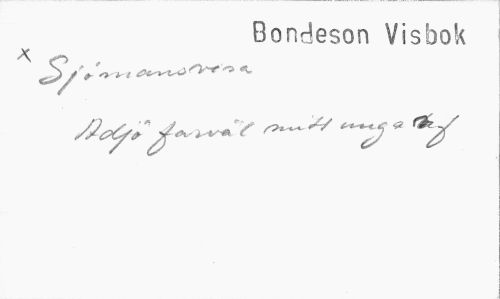 Bondeson Visbok
x Sjömansvisa
Adjö farväl mitt unga